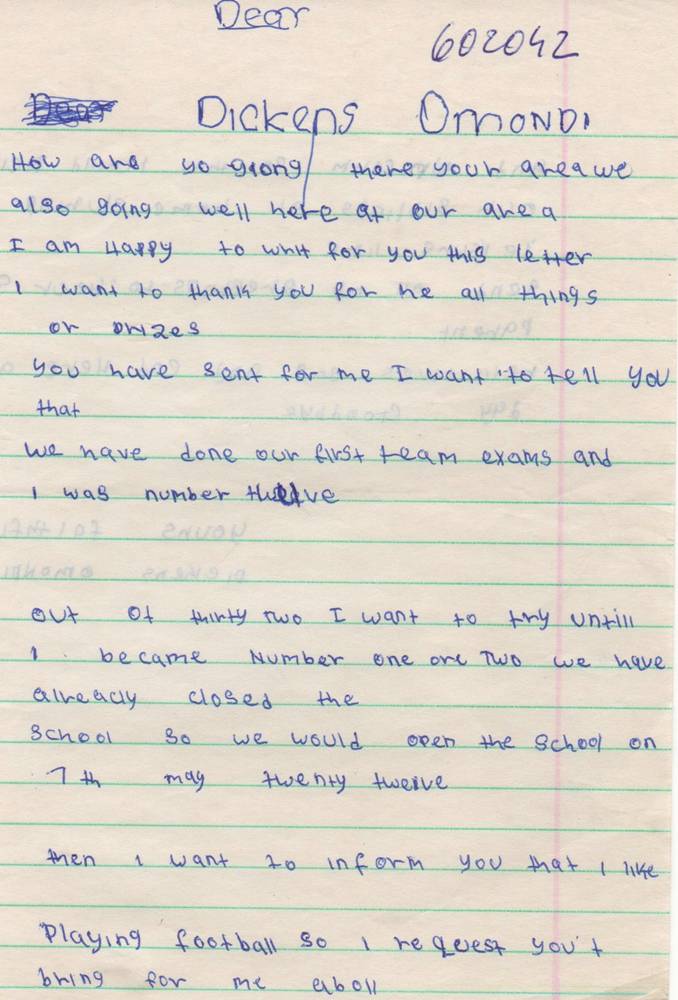 Dear
602042
Dear Dickens Omondi
How are yo giong there your area we
also going well here at our area
I am Happy to writ for you this letter
I want to thank you for he all things
or prizes
you have sent for me I want to tell you
that
we have done our first team exams and
I was number thwelve
out of thirty two I want to try untill
I became Number one ore Two we have
already closed the
school so we would open the school on
7th may twenty twelve
then i want to inform you that I like
Playing football so I request you't
bring for me aboll